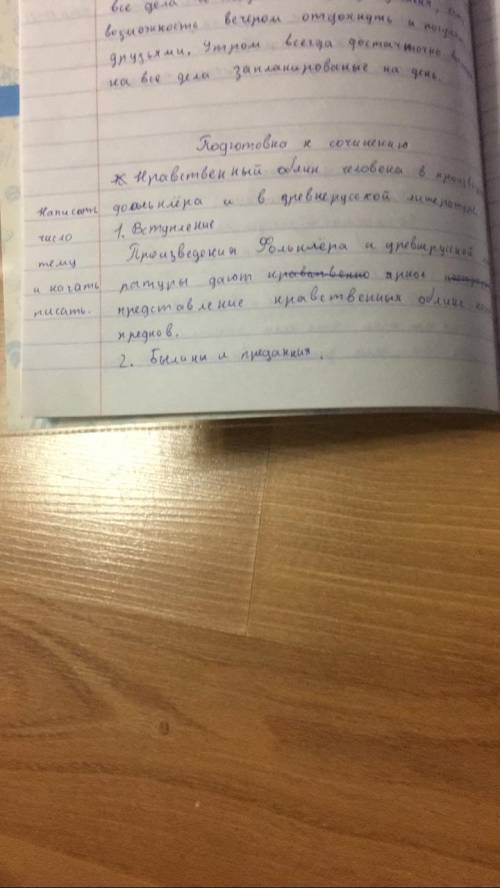 все дела
возможность вечером отдохнуть и
друзьями. Утром всегда достаточно
на все дела запланированые на день.
Подготовка к сочинению
Нравственный облик человека в
фольклёра и в древнерусской
1. Вступление
Произведения Фольклёра и древнерусской
ратуры дают нравственно яркое
представление нравственных облике
предков.
2. Былины и предания.
Написать
число
тему
и начать
писать.